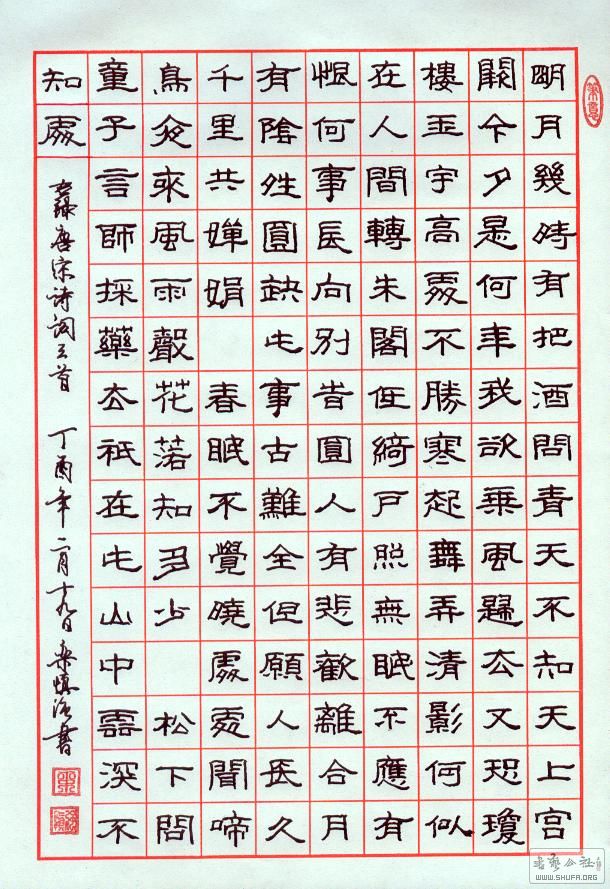 明月幾時有把酒問青天不知天上宮
闕今夕是何年我欲乗風歸去又恐瓊
樓玉宇高處不勝寒起舞弄清影何似
在人間轉朱閣低綺戶照無眠不應有
恨何事長向別旹圓人有悲歡離合月
有陰夝圓缺此事古難全但願人長久
千里共嬋娟 春眠不覺曉處處聞啼
鳥夜來風雨聲花落知多少 松下問
童子言師採藥去祇在此山中雲深不
知處
錄唐宋诗词三首 丁酉年二月十九日 書
书艺公社
WWW.SHUFA.ORG